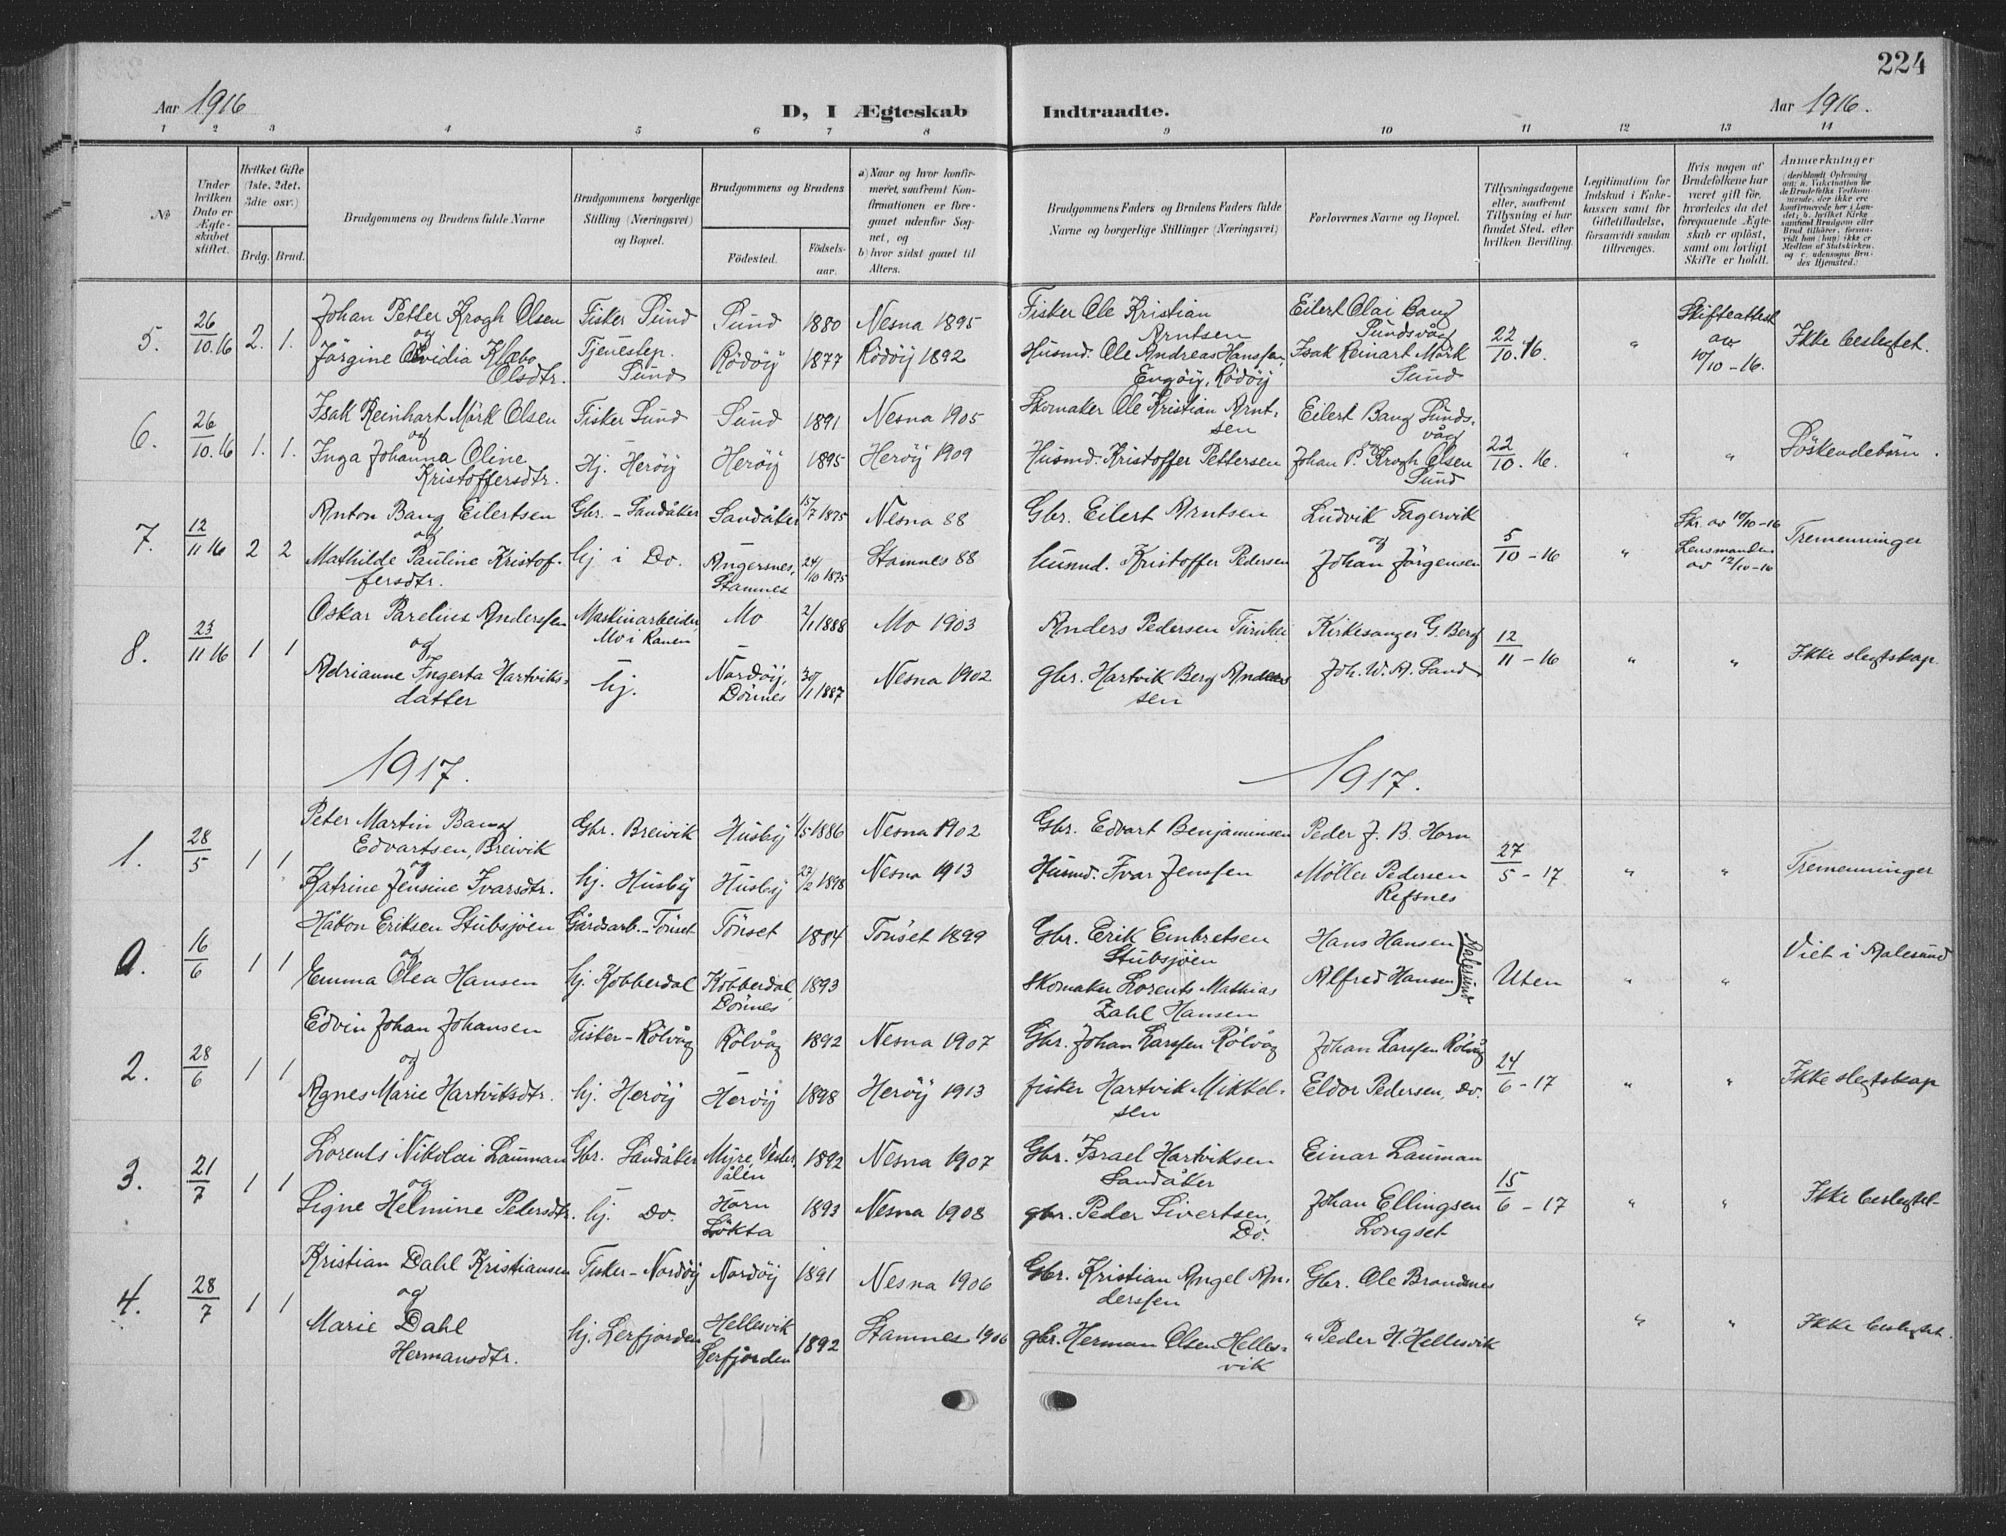 224
Aar 1916
D, I Ægteskab Indtraadte.
Aar 1916.
1 2 3 4 5 6 7 8 9 10 11 12 13 14
No
Under hvilken Dato er Ægteskabet stiftet.
Hvilket Gifte (1ste. 2det. 3die osv.)
Brdg. Brud.
Brudgommens og Brudens fulde Navne
Brudgommens borgerlige Stilling (Næringsvei) og Bopæl.
Brudgommens og Brudens
Födested. Födselsaar.
a) Naar og hvor konfirmeret, saafremt Konfirmationen er foregaaet udenfor Sognet, og
b) hvor sidst gaaet til Alters.
Brudgommens Faders og Brudens Faders fulde Navne og borgerlige Stillinger (Næringsvei)
Forlovernes Navne og Bopæl.
Tillysningsdagene eller, saafremt Tillysning ei har fundet Sted, efter hvilken Bevilling.
Legitimation for Indskud i Enkekassen samt for Giftetilladelse, forsaavidt saadan tiltrænges.
Hvis nogen af Brudefolkene har været gift för, hvorledes da det foregaaende Ægteskab er oplöst, samt om lovligt Skifte er holdt.
Anmærkninger
5. 26/10.16 2. 1. Johan Petter Krogh Olsen Fisker Sund Sund 1880 Nesna 1895 Fisker Ole Kristian Arntsen Eilert Olai Bang Sundsvåg 22/10.16. " Skifteattest av 10/10-16. Ikke beslegtet.
og
Jörgine Ovidia Klæbo Olsdtr. Tjenestep. Sund Rödöiy 1877 Rödöiy 1892 Husmd. Ole Andreas Hanssen, Engöiy, Rödöiy Isak Reinart Mörk Sund
6. 26/10.16 1. 1. Isak Reinhart Mörk Olsen Fisker Sund Sund 1891 Nesna 1905 Skomaker Ole Kristian Arntsen Eilert Bang Sundsvåg 22/10.16. " " Söskendebarn.
og
Inga Johanna Oline Kristoffersdtr. Hj. Heröiy Heröiy 1895 Heröiy 1909 Husmd. Kristoffer Pettersen Johan P. Krogh Olsen Sund
7. 12/11 16 2 2 Anton Bang Eilertsen Gbr. - Sandåker Sandåker 15/7 1875 Nesna 88 Gbr. Eilert Arntsen Ludvik Fagervik 5/10-16 " Skr. av 10/10-16 Lensmanden av 12/10-16 Tremenninger
og
Mathilde Pauline Kristoffersdtr. hj i Do. Angersnes, Stamnes 24/10 1875 Stamnes 88 husmd. Kristoffer Pedersen og Johan Jörgensen
8. 23/11 16 1 1 Oskar Parelius Anderssen Maskinarbeider Mo i Ranen Mo 2/11 1888 Mo 1903 Anders Pedersen Kirkesanger G. Berg 12/11-16 " " Ikke slegtskap
og
Adrianne Ingerta Hartviksdatter hj. Nordöiy, Dönnes 30/11 1887 Nesna 1902 gbr. Hartvik Berg Anderssen Joh. W. A. Sand
1917. 1917.
1. 28/5 1 1 Peter Martin Bang Edvartsen, Breivik Gbr. Breivik Husby 1/5 1886 Nesna 1902 Gbr. Edvart Benjaminsen Peder J. B. Horn 27/5-17 " " Tremenninger
og
Katrine Jensine Ivarsdtr. hj. Husby Husby 27/2 1898 Nesna 1913 Husmd. Ivar Jenssen Möller Pedersen Refsnes
0. 16/6 1 1 Håkon Eriksen Stubsjöen Gårdsarb. - Tönset Tönset 1884 Tönset 1899 Gbr. Erik Embretsen Stubsjöen Hans Hansen Aalesund Uten " " Viet i Aalesund
og
Emma Olea Hansen hj. Kobberdal Kobberdal, Dönnes 1893 Skomaker Lorents Mathias Zahl Hansen Alfred Hansen
2. 28/6 1 1 Edvin Johan Johansen Fisker - Rölvåg Rölvåg 1892 Nesna 1907 Gbr. Johan Larssen Rölvåg Johan Larssen Rölvåg 24/6-17 " " Ikke slegtskap
og
Agnes Marie Hartviksdtr. hj. Heröiy Heröiy 1898 Heröiy 1913 fisker Hartvik Mikkelsen Eldor Pedersen, do.
3. 21/7 1 1 Lorents Nikolai Lauman Gbr. Sandåker Myre, Vesterålen 1892 Nesna 1907 Gbr. Israel Hartviksen Sandåker Einar Lauman 15/6-17 " " Ikke beslegtet-
og
Signe Helmine Pedersdtr. hj. Do. Horn Lökta 1893 Nesna 1908 gbr. Peder Sivertsen, Do. Johan Ellingsen Longset
4. 28/7 1 1 Kristian Dahl Kristiansen Fisker - Nordöiy Nordöiy 1891 Nesna 1906 Gbr. Kristian Angel Anderssen Gbr. Ole Brandnes " " Ikke beslegtet.
og
Marie Dahl Hermansdtr. hj. Lerfjorden Hellesvik Lerfjorden 1892 Stamnes 1906 gbr. Herman Olsen Hellesvik " Peder H. Hellesvik